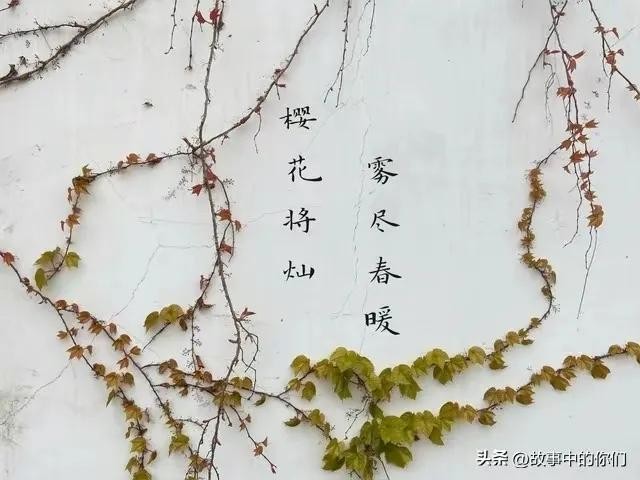 雾尽春暖
樱花将灿
头条 @故事中的你们